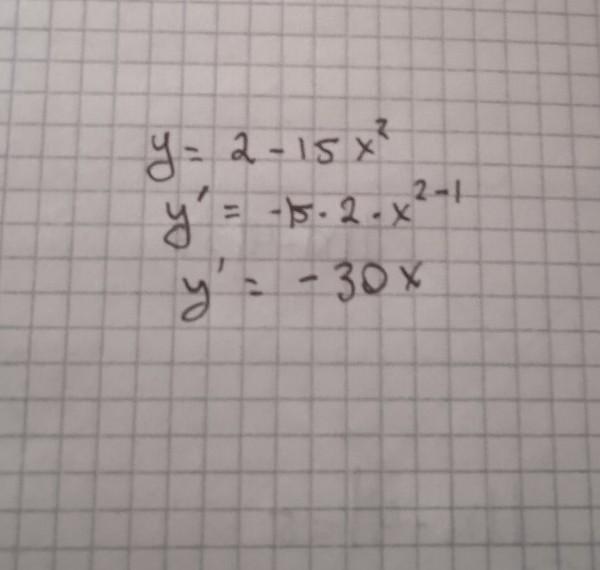 y = 2 - 15x²
y' = -15 · 2 · x²⁻¹
y' = -30x